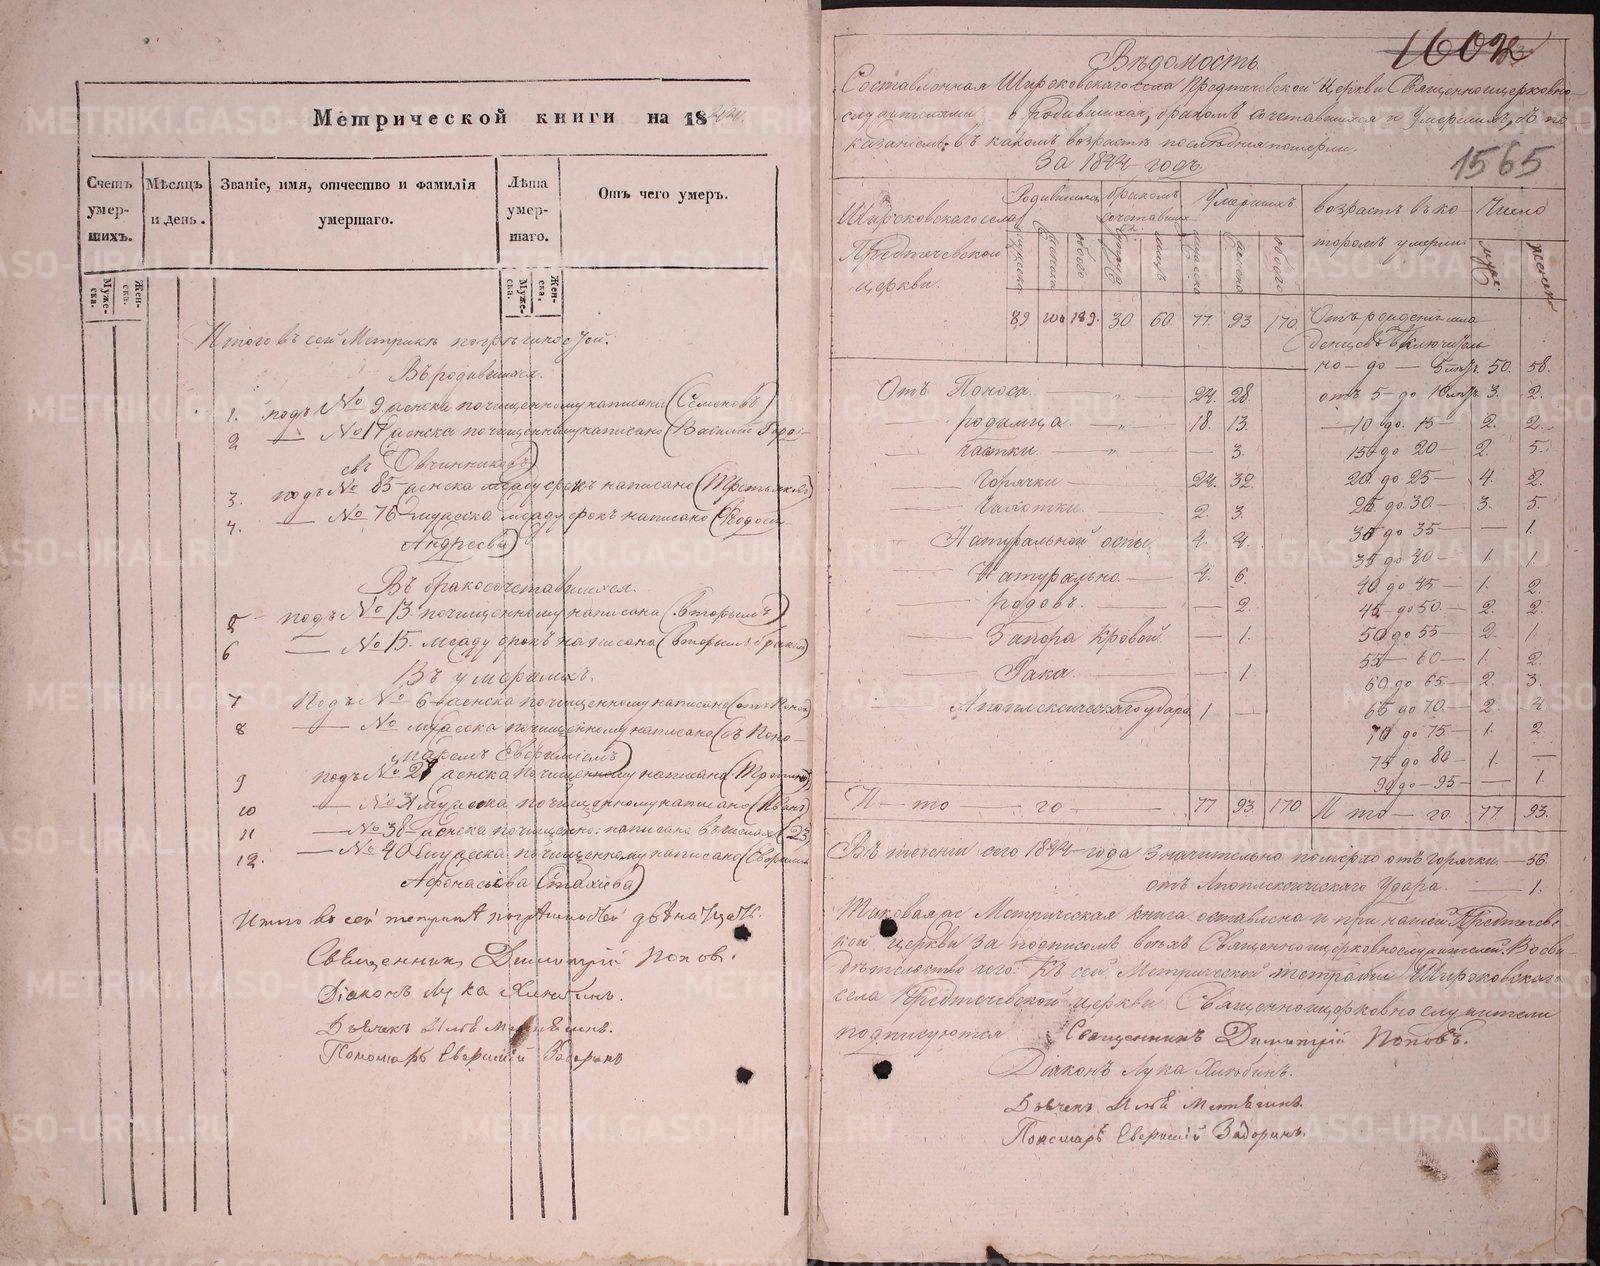 Метрической книги на 1844.
Счетъ умер- шихъ.
Мѣсяцъ и день.
Званіе, имя, отчество и фамилія умершаго.
Лѣта умер- шаго.
Отъ чего умеръ.
Муже- ска.
Жен- ска.
Муже- ска.
Жен- ска.
Итого въ сей Метрикѣ погрѣшностей.
Въ родившихся.
1. подъ № 9 женска почищенному написано (Семеновъ)
2 — № 17 женска почищенному написано (Василій
евъ Овчинниковъ)
3. подъ № 85 женска между срокъ написано (Третьяковъ)
4. — № 76 мужеска между срокъ написано (
Андреева)
Въ бракосочетавшихся.
5 подъ № 13. почищенному написано (вторымъ)
6 — № 15. между срокъ написано (вторымъ бракомъ)
Въ умершихъ.
7 Подъ № 6 женска почищенному написано (отъ Поноса)
8 — № мужеска почищенному написано (съ Поно-
маремъ Евфиміемъ)
9 подъ № 21 женска почищенному написано
10 — № 31 мужеска почищенному написано (Иванъ)
11 — № 38 женска почищенно: написано въ числахъ (23)
12. — № 40 мужеска почищенному написано
Афонасьева Стахіева)
Итого въ сей тетрикѣ погрѣшностей двѣнатцать.
Священникъ Димитрій Поповъ.
Діаконъ Лука Хлюбинъ.
Дьячекъ Илья
Пономарь Евфимій Задоринъ
1602
Вѣдомость.
Составленная Широковскаго села Предтечевской Церкви Священноцерковно-
служителями о родившихся, бракомъ сочетавшихся и Умершихъ, съ по
казаніемъ въ какомъ возрастѣ послѣднія померли.
За 1844 годъ.
1565
Широковскаго села Предтечевской церкви.
Родившихся
бракомъ сочетавших-ся.
Умершихъ
возрастъ въ ко- торомъ умерли.
Число
мужеска
женска
обоего
мужеска
женска
обоего
муже.
женск
89 100 189. 30 60. 77. 93. 170. Отъ рожденія мла
денцевъ включитель
но - до - 5 лѣтъ. 50. 58.
Отъ Поноса. — 24. 28. отъ 5 до 10 лѣтъ. 3. 2.
— родимца. — 18. 13. — 10 до 15 — 2. 2.
— чахтки. — — 3. 15 до 20 — 2. 5.
— Горячки — 24. 32. 20 до 25 — 4. 2.
— — 2. 3. 25 до 30 — 3. 5.
— Натуральной оспы 4. 4. 30 до 35 — — 1.
35 до 40 — 1. 1.
— Натурально. — 4. 6. 40 до 45 — 1. 2.
— родовъ. — — 2. 45 до 50 — 2. 2.
— Запора кровей. — 1. 50 до 55 — 2. 1.
55 — 60 — 1. 2.
— Рака. — — 1. 60 до 65 — 2. 3.
— Апоплексическаго удара 1 — 65 до 70 — 2. 4.
70 до 75 — 1. 2.
75 до 80 — 1. —
90 до 95 — — 1.
И — то — го — 77. 93. 170. И то — го 77. 93.
Въ теченіи сего 1844 года Значительно померло отъ горячки — 56.
отъ Апоплексическаго Удара. — 1.
Таковая же Метрическая книга оставлена и при нашей Предтечев-
ской церкви за подписомъ всѣхъ Священноцерковнослужителей. Во сви-
дѣтельство чего: Къ сей Метрической тетради Широковскаго
села Предтечевской церкви Священноцерковнослужители
подписуются Священникъ Димитрій Поповъ.
Діаконъ Лука Хлюбинъ.
Дьячекъ Илья
Пономарь Евфимій Задоринъ.
METRIKI.GASO-URAL.RU